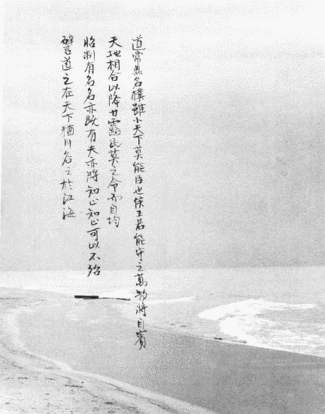 道常無名樸雖小天下莫能臣也侯王若能守之萬物將自賓
天地相合以降甘露民莫之令而自均
始制有名名亦既有夫亦將知止知止可以不殆
譬道之在天下猶川谷之於江海